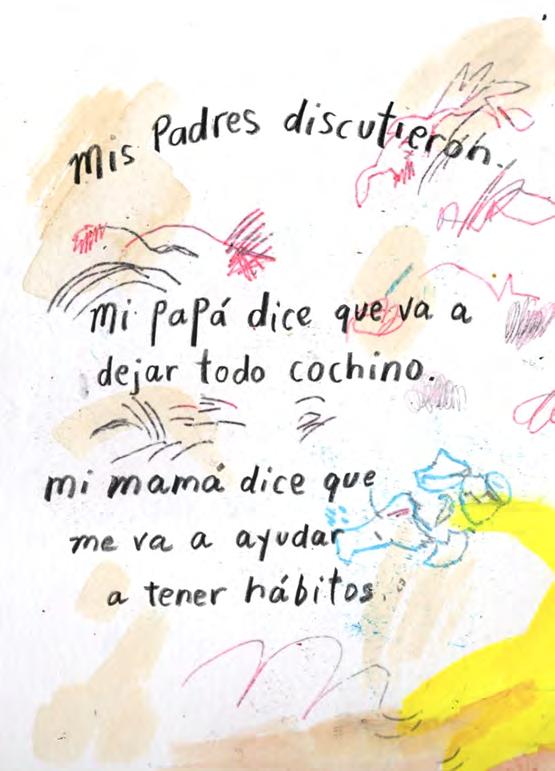 Mis Padres discutieron.
Mi papá dice que va a
dejar todo cochino.
mi mamá dice que
me va a ayudar
a tener hábitos.